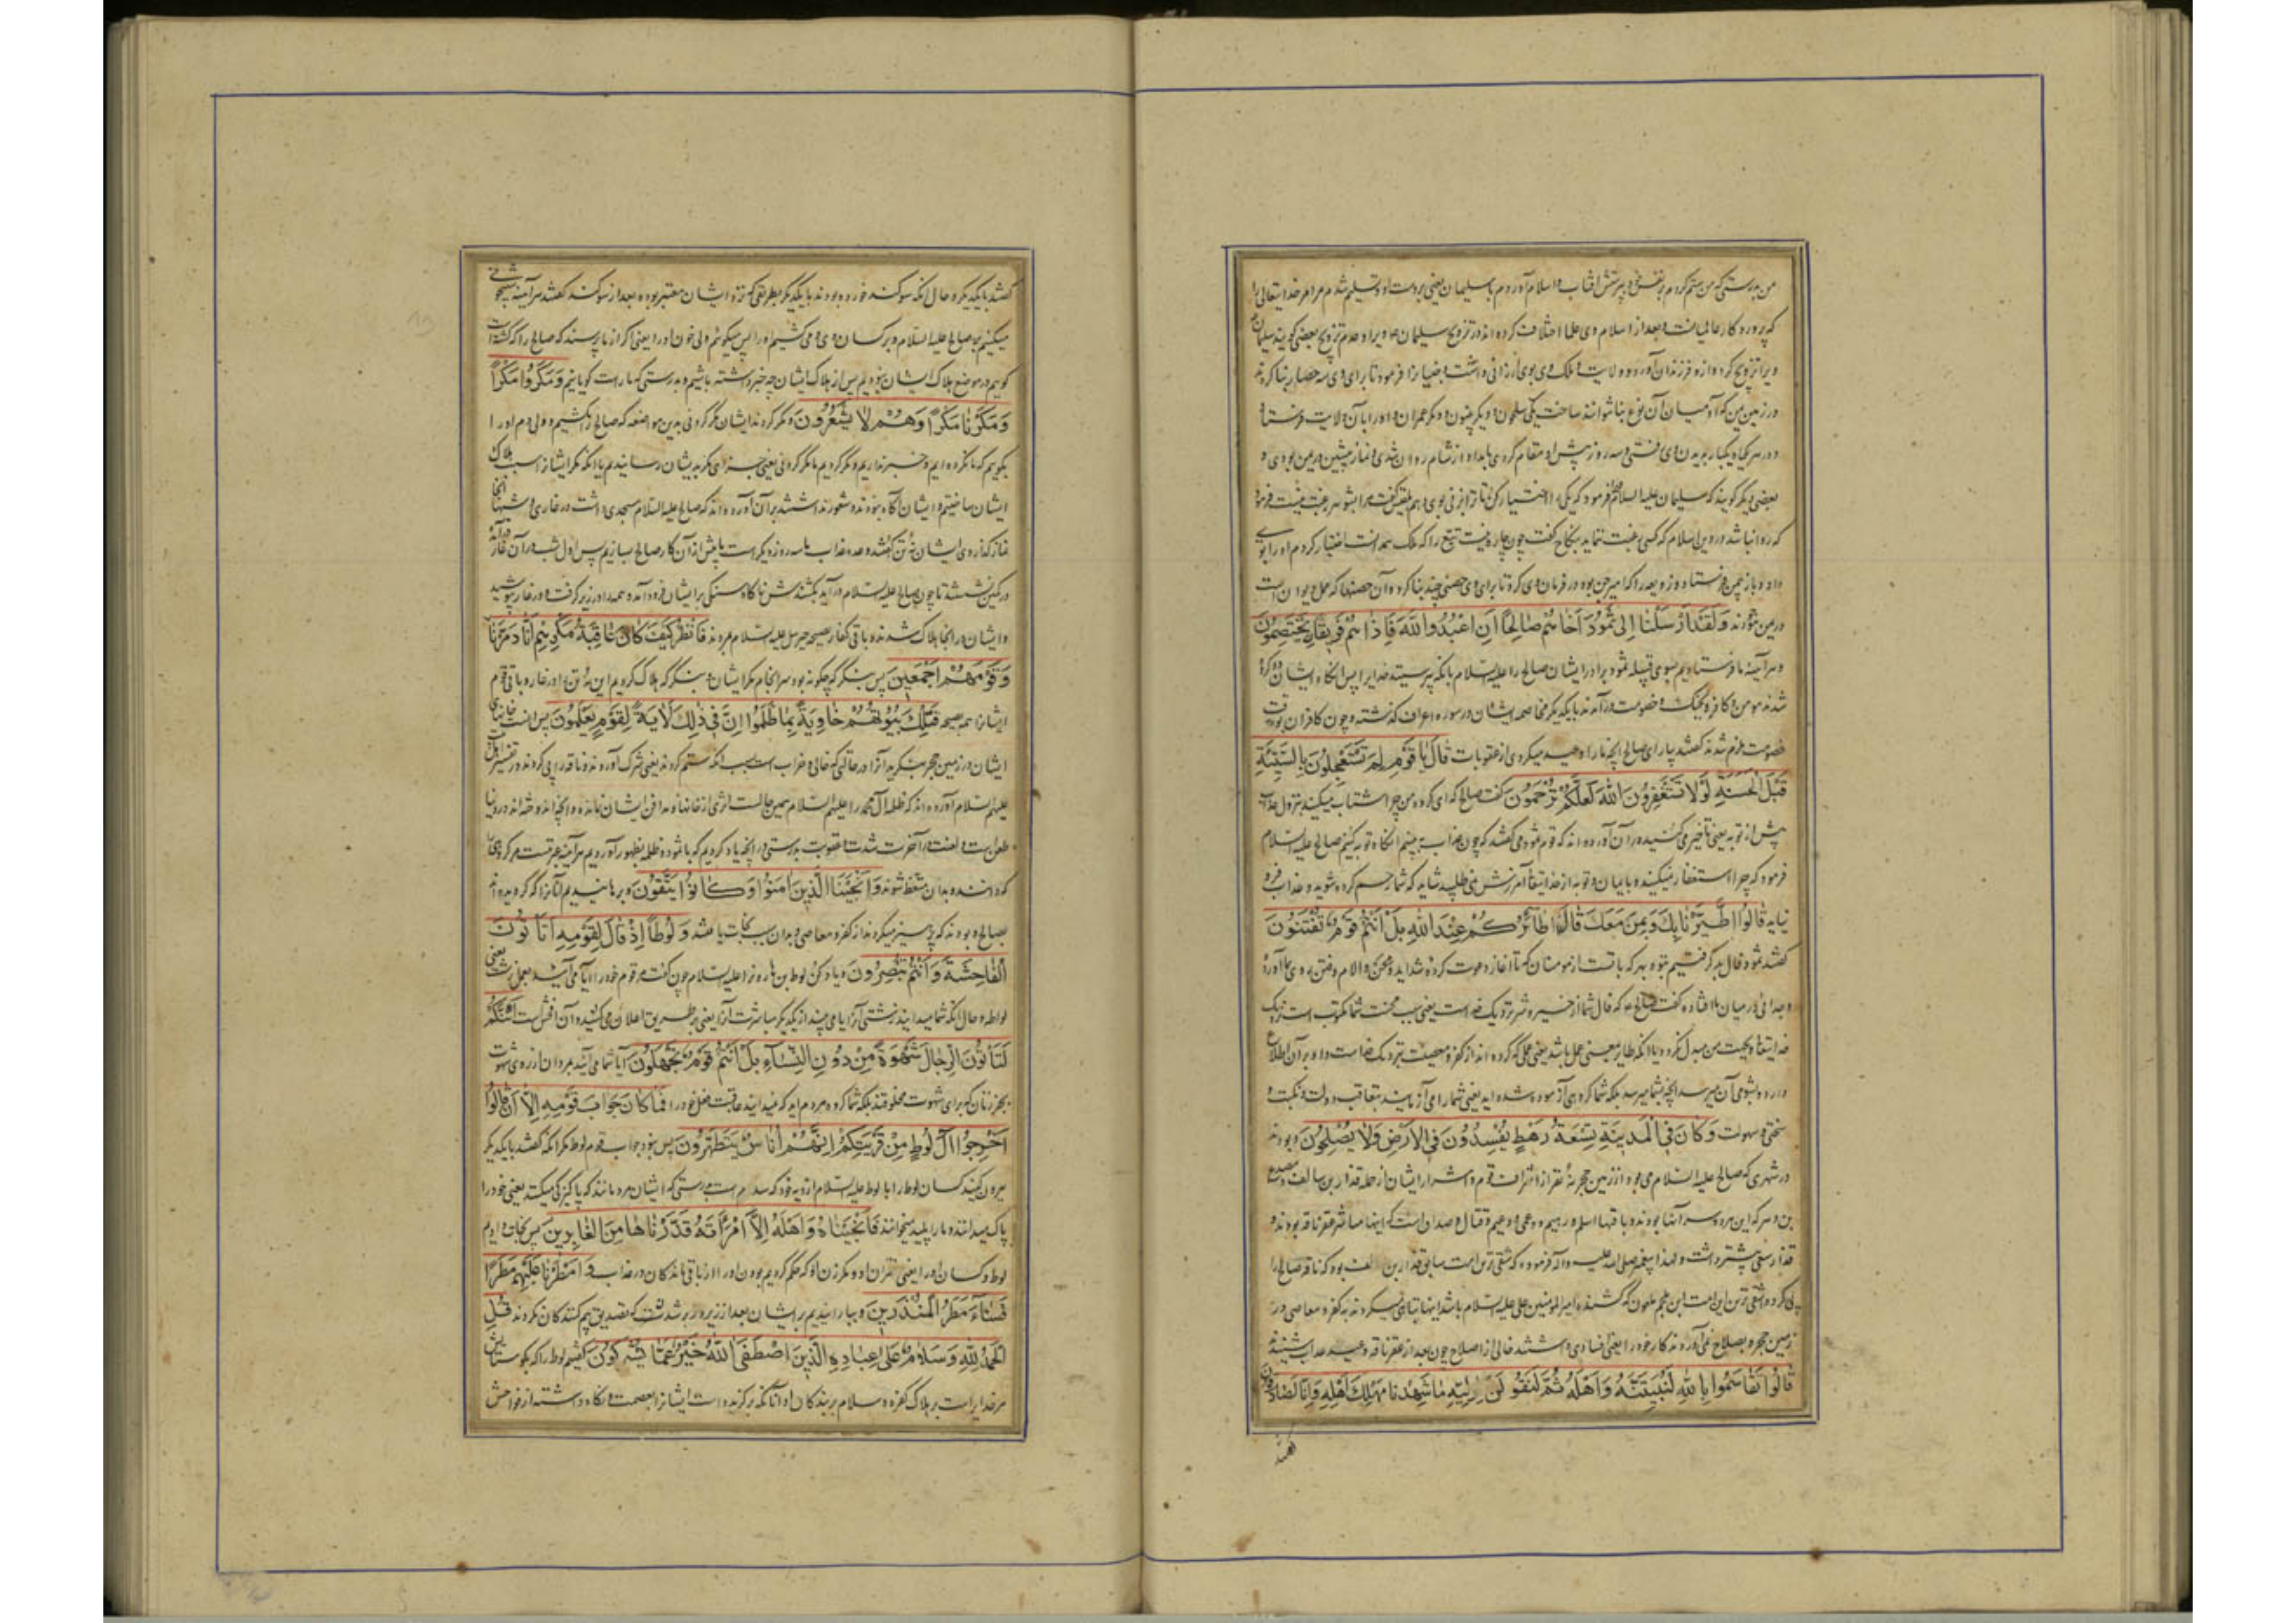 من بدرستی که من ستم کردم بر نفس خود پرستش آفتاب و اسلام آوردم با سلیمان یعنی بر دست او و تسلیم شدم مر امر خدایتعالی را
که پروردکار عالمیانست و بعد از اسلام وی علما اختلاف کرده اند در تزویج سلیمان ویرا و عدم تزویج بعضی کویند سلیمان
ویرا تزویج کرد و ازو فرزندان آورد و ولایت و ملک وی بوی ارزانی داشت و جنیانرا فرمود تا برای وی سه حصار بنا کردند
در زمین یمن که آدمیان آن نوع بنا نتوانند ساخت یکی سلحون و دیکر بینون و دیکر عمران و او را بآن ولایت فرستاد
و در هر یکماه یکبار بدیدن وی رفتی و سه روز پیش او مقام کردی بامداد از شام روان شدی و نماز پیشین در یمن بودی و
بعضی دیکر کویند که سلیمان علیه السلام فرمود که یکی را اختیار کن تا ترا بزنی بوی دهم بلقیس کفت مرا بشوهر رغبت نیست فرمود
که روا نباشد در دین اسلام که کسی رغبت ننماید بنکاح کفت چون چاره نیست تبع را که ملک همدانست اختیار کردم او را بوی
داد و باز بیمن فرستاد و زوبعه را که امیر جن بود در فرمان وی کرد تا برای وی حصنی چند بنا کرد و آن حصنها
در یمن مؤزند وَلَقَدْ اَرْسَلْنا اِلى ثَمُودَ اَخاهُمْ صالِحًا اَنِ اعْبُدُوا اللهَ فَاِذا هُمْ فَريقانِ يَخْتَصِمُونَ
و هر آینه ما فرستادیم بسوی قبیله ثمود برادر ایشان صالح را علیه السلام بآنکه پرستید خدایرا پس آنکاه ایشان دو کروه
شدند مومن و کافر و بجنک و خصومت درآمدند با یکدیکر مخاصمه ایشان در سوره اعراف کذشته و چون کافران بوقت
خصومت ملزم شدند کفتند بیار ای صالح آنچه ما را وعید میکردی از عقوبات قالَ يا قَوْمِ لِمَ تَسْتَعْجِلُونَ بِالسَّيِّئَةِ
قَبْلَ الْحَسَنَةِ لَوْلا تَسْتَغْفِرُونَ اللهَ لَعَلَّكُمْ تُرْحَمُونَ کفت صالح که ای کروه من چرا شتاب میکنید بنزول عذاب
پیش از توبه یعنی تاخیر می کنید در آن آورده اند که قوم ثمود می کفتند که چون عذاب ببینیم آنکاه توبه کنیم صالح علیه السلام
فرمود که چرا استغفار نمیکنید و با ایمان و توبه از خدایتعالی آمرزش نمی طلبید شاید که شما رحم کرده شوید و عذاب فرو
نیاید قالُوا اطَّيَّرْنا بِكَ وَبِمَنْ مَعَكَ قالَ طائِرُكُمْ عِنْدَ اللهِ بَلْ اَنْتُمْ قَوْمٌ تُفْتَنُونَ
کفتند ثمود فال بد کرفتیم بتو و بهر که با تست از مومنان که تا آغاز دعوت کرده شداید و محن و آلام و فتن روی بما آورد
و جدائی در میان ما افتاد کفت صالح که فال شما از خیر و شر نزدیک خداست یعنی سبب محنت شما مکتوب است نزدیک
خدایتعالی و بجهت من مبدل نکردد یا آنکه طایر بمعنی عمل باشد یعنی عملی که کرده اند از کفر و معصیت نزدیک خداست و او بر آن اطلاع
دارد و بشومی آن میرسد آنچه بشما میرسد بلکه شما کروهی آزموده شده اید یعنی شما را می آزمایند بتعاقب دولت و نکبت و
سختی و سهولت وَكانَ فِي الْمَدينَةِ تِسْعَةُ رَهْطٍ يُفْسِدُونَ فِي الْاَرْضِ وَلا يُصْلِحُونَ و بودند
در شهری که صالح علیه السلام می بود از زمین حجر نه نفر از اشراف قوم و اشرار ایشان از جمله قدار بن سالف و مصدع
بن دهر که این مردو سرآمد آنها بودند و باقیها اسلم و رهیم و دعمی و دعیم و قتال و صداق است که اینها مباشر عقر ناقه بودند و
قدار سعی بیشتر داشت و لهذا پیغمبر صلی الله علیه و آله فرموده که شقی ترین امت سابق قدار بن سالف بود که ناقه صالح را
پی کرد و شقی ترین این امت ابن ملجم ملعون که کشنده امیر المومنین علی علیه السلام باشد اینها تباهی میکردند بکفر و معاصی در
زمین حجر و بصلاح نمی آوردند کار خود را یعنی فسادی داشتند خالی از اصلاح چون بعد از عقر ناقه وعید عذاب شنیدند
قالُوا تَقاسَمُوا بِاللهِ لَنُبَيِّتَنَّهُ وَاَهْلَهُ ثُمَّ لَنَقُولَنَّ لِوَلِيِّهِ ما شَهِدْنا مَهْلِكَ اَهْلِهِ وَاِنّا لَصادِقُونَ
کفتند
کفتند با یکدیکر و حال آنکه سوکند خورده بودند با یکدیکر بطریقی که نزد ایشان معتبر بوده بعد از سوکند کفتند هر آینه شبیخون
میکنیم بر صالح علیه السلام و بر کسان وی و می کشیم او را پس میکوئیم ولی خون او را یعنی اکر از ما پرسند که صالح را که کشته است
کوئیم در موضع هلاک ایشان نبودیم پس از هلاک ایشان چه خبر داشته باشیم و بدرستی که ما راست کویانیم وَمَكَرُوا مَكْرًا
وَمَكَرْنا مَكْرًا وَهُمْ لا يَشْعُرُونَ و مکر کردند ایشان مکر کردنی بدین مواضعه که صالح را بکشیم و ولی دم او را
بکوئیم که ما نکرده ایم و خبر نداریم و مکر کردیم ما مکر کردنی یعنی جزای مکر بدیشان رسانیدیم یا آنکه مکر ایشانرا سبب هلاک
ایشان ساختیم و ایشان آکاه نبودند و شعور نداشتند بر آن آورده اند که صالح علیه السلام مسجدی داشت در غاری و شبها آنجا
نماز کذاردی ایشان نه تن کفتند وعده عذاب ما سه روز دیکر است ما پیش از آن کار صالح بسازیم پس اول شب در آن غار درآمده
در کمین نشستند تا چون صالح علیه السلام درآید بکشندش ناکاه سنکی بر ایشان فرود آمد و همه را در زیر کرفت و در غار پوشید
و ایشان در آنجا هلاک شدند و باقی کفار بصیحه جبرئیل علیه السلام مردند فَانْظُرْ كَيْفَ كانَ عاقِبَةُ مَكْرِهِمْ اَنّا دَمَّرْناهُمْ
وَقَوْمَهُمْ اَجْمَعينَ پس بنکر که چکونه بود سرانجام مکر ایشان و بنکر که هلاک کردیم این نه تن را در غار و باقی قوم
ایشانرا همه بصیحه فَتِلْكَ بُيُوتُهُمْ خاوِيَةً بِما ظَلَمُوا اِنَّ في ذلِكَ لَآيَةً لِقَوْمٍ يَعْلَمُونَ پس آنست خانهای
ایشان در زمین حجر بنکرید آنرا در حالتی که خالی و خراب است بسبب آنکه ستم کردند یعنی شرک آوردند و ناقه را پی کردند در تفسیر اهل بیت
علیهم السلام آورده اند که ظلمه آل محمد را علیهم السلام همین حالت اثری از خانمانها و مدافن ایشان نمانده و آنچه مانده در دنیا
طعن است و لعنت و در آخرت شدت عقوبت بدرستی در آنچه یاد کردیم که با ثمود و ظلمه بظهور آوردیم هر آینه عبرتست مر کروهی را
که دانند و بدان متعظ شوند وَاَنْجَيْنَا الَّذينَ آمَنُوا وَكانُوا يَتَّقُونَ و برهانیدیم آنانرا که کرویده اند
بصالح و بودند که پرهیز میکردند از کفر و معاصی و بدان سبب نجات یافتند وَلُوطًا اِذْ قالَ لِقَوْمِهِ اَتَأْتُونَ
الْفاحِشَةَ وَاَنْتُمْ تُبْصِرُونَ و یاد کن لوط بن هارانرا علیه السلام چون کفت مر قوم خود را آیا می آئید بعمل زشت یعنی
لواطه و حال آنکه شما میدانید زشتی آنرا یا می بینید از یکدیکر مباشرت آنرا یعنی بر طریق اعلان می کنید و آن افحش است اَئِنَّكُمْ
لَتَأْتُونَ الرِّجالَ شَهْوَةً مِنْ دُونِ النِّساءِ بَلْ اَنْتُمْ قَوْمٌ تَجْهَلُونَ آیا شما می آئید بمردان از روی شهوت
بجز زنان که برای شهوت مخلوقند بلکه شما کروه مردم اید که نمیدانید عاقبت فعل خود را فَما كانَ جَوابَ قَوْمِهِ اِلّا اَنْ قالُوا
اَخْرِجُوا آلَ لُوطٍ مِنْ قَرْيَتِكُمْ اِنَّهُمْ اُناسٌ يَتَطَهَّرُونَ پس نبود جواب قوم لوط مکر آنکه کفتند با یکدیکر
بیرون کنید کسان لوط را با لوط علیه السلام از دیه خود که سدوم است بدرستی که ایشان مردمانند که پاکیزکی میکنند یعنی خود را
پاک میدانند و ما را پلید میخوانند فَاَنْجَيْناهُ وَاَهْلَهُ اِلّا امْرَأَتَهُ قَدَّرْناها مِنَ الْغابِرينَ پس نجات دادیم
لوط و کسان او را یعنی دختران او و مکر زن او که حکم کردیم بودن او را از باقی ماندکان در عذاب وَاَمْطَرْنا عَلَيْهِمْ مَطَرًا
فَساءَ مَطَرُ الْمُنْذَرينَ و ببارانیدیم بر ایشان بعد از زیر و زبر شدن کان نکردند قُلِ
الْحَمْدُ لِلهِ وَسَلامٌ عَلى عِبادِهِ الَّذينَ اصْطَفى آللهُ خَيْرٌ اَمّا يُشْرِكُونَ کفتیم لوط را که بکو ستایش
مر خدایراست بر هلاک کفره و سلام بر بندکان او آنانکه برکزیده است ایشانرا بعصمت و نکاه داشته از فواحش